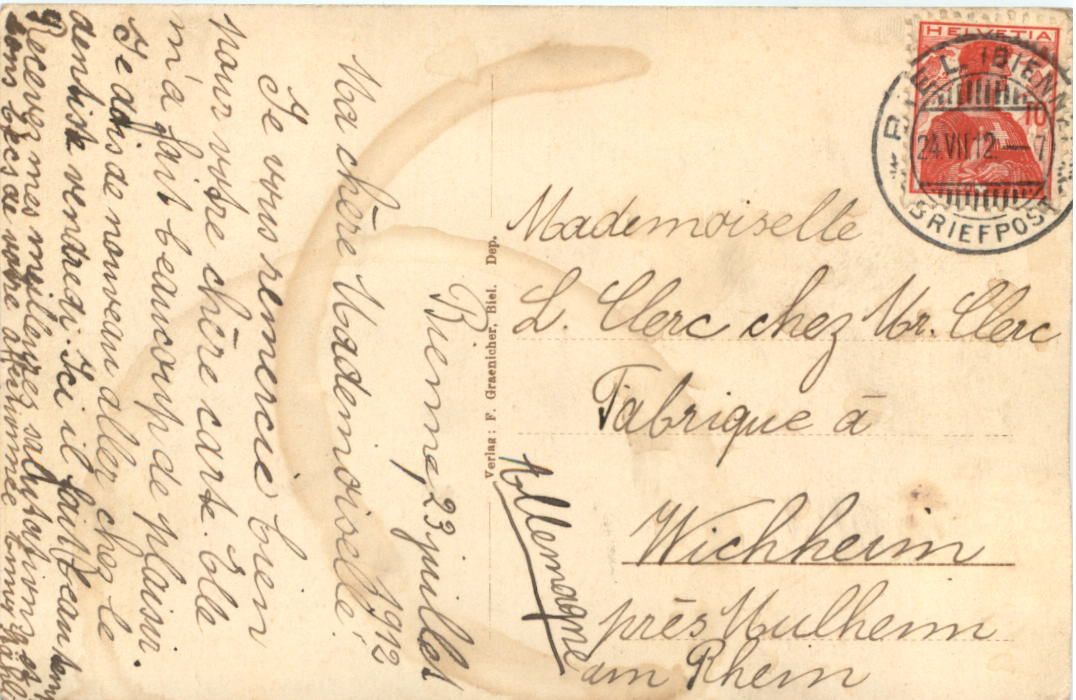 Bienne, 23 juillet
1912
Ma chère Mademoiselle!
Je vous remercie bien
pour votre chère carte. Ela
m'a fait beaucoup de plaisir.
Je dois de nouveau aller chez le
dentiste vendredi. Ici il fait beau temps
Recevez mes meilleures salutations et
bons becs de votre affectionnée
Verlag: F. Graenicher, Biel. Dep.
HELVETIA
10
BIEL (BIENNE)
24.VII.12.—7
BRIEFPOST
Mademoiselle
L. Clerc chez Mr. Clerc
Fabrique à
Wichheim
près Mulheim
am Rhein
Allemagne